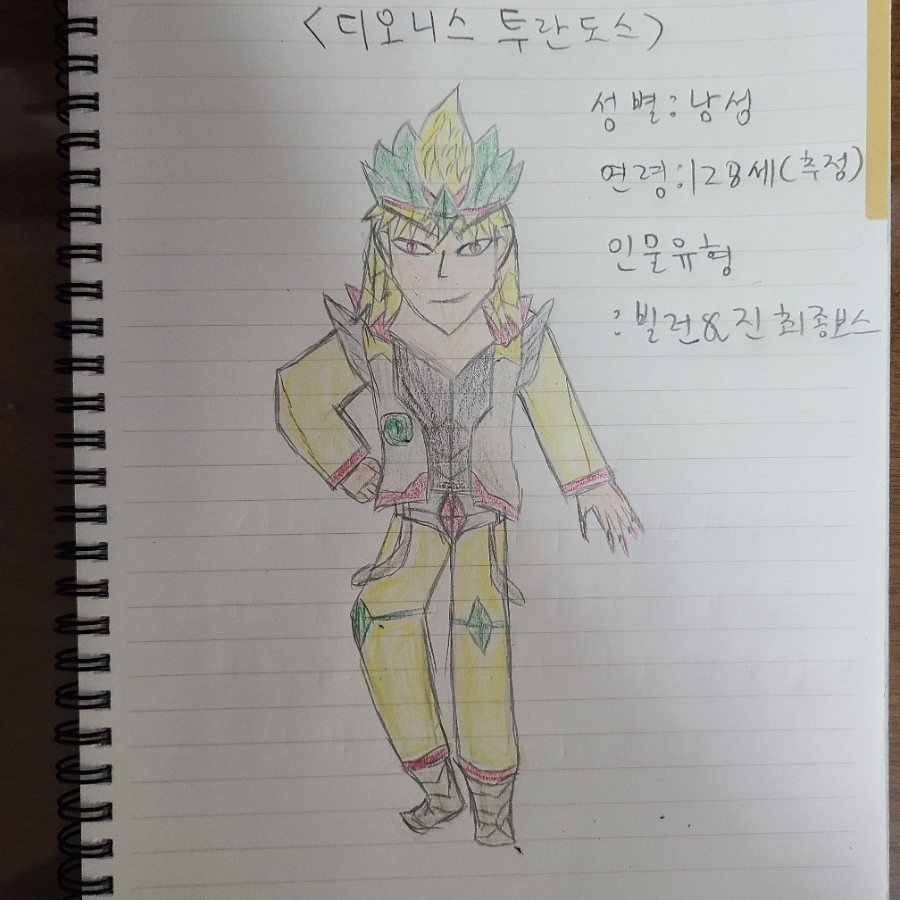 <디오니스 투란도스>
성별:남성
연령:128세(추정)
인물유형
:빌런&진 최종보스